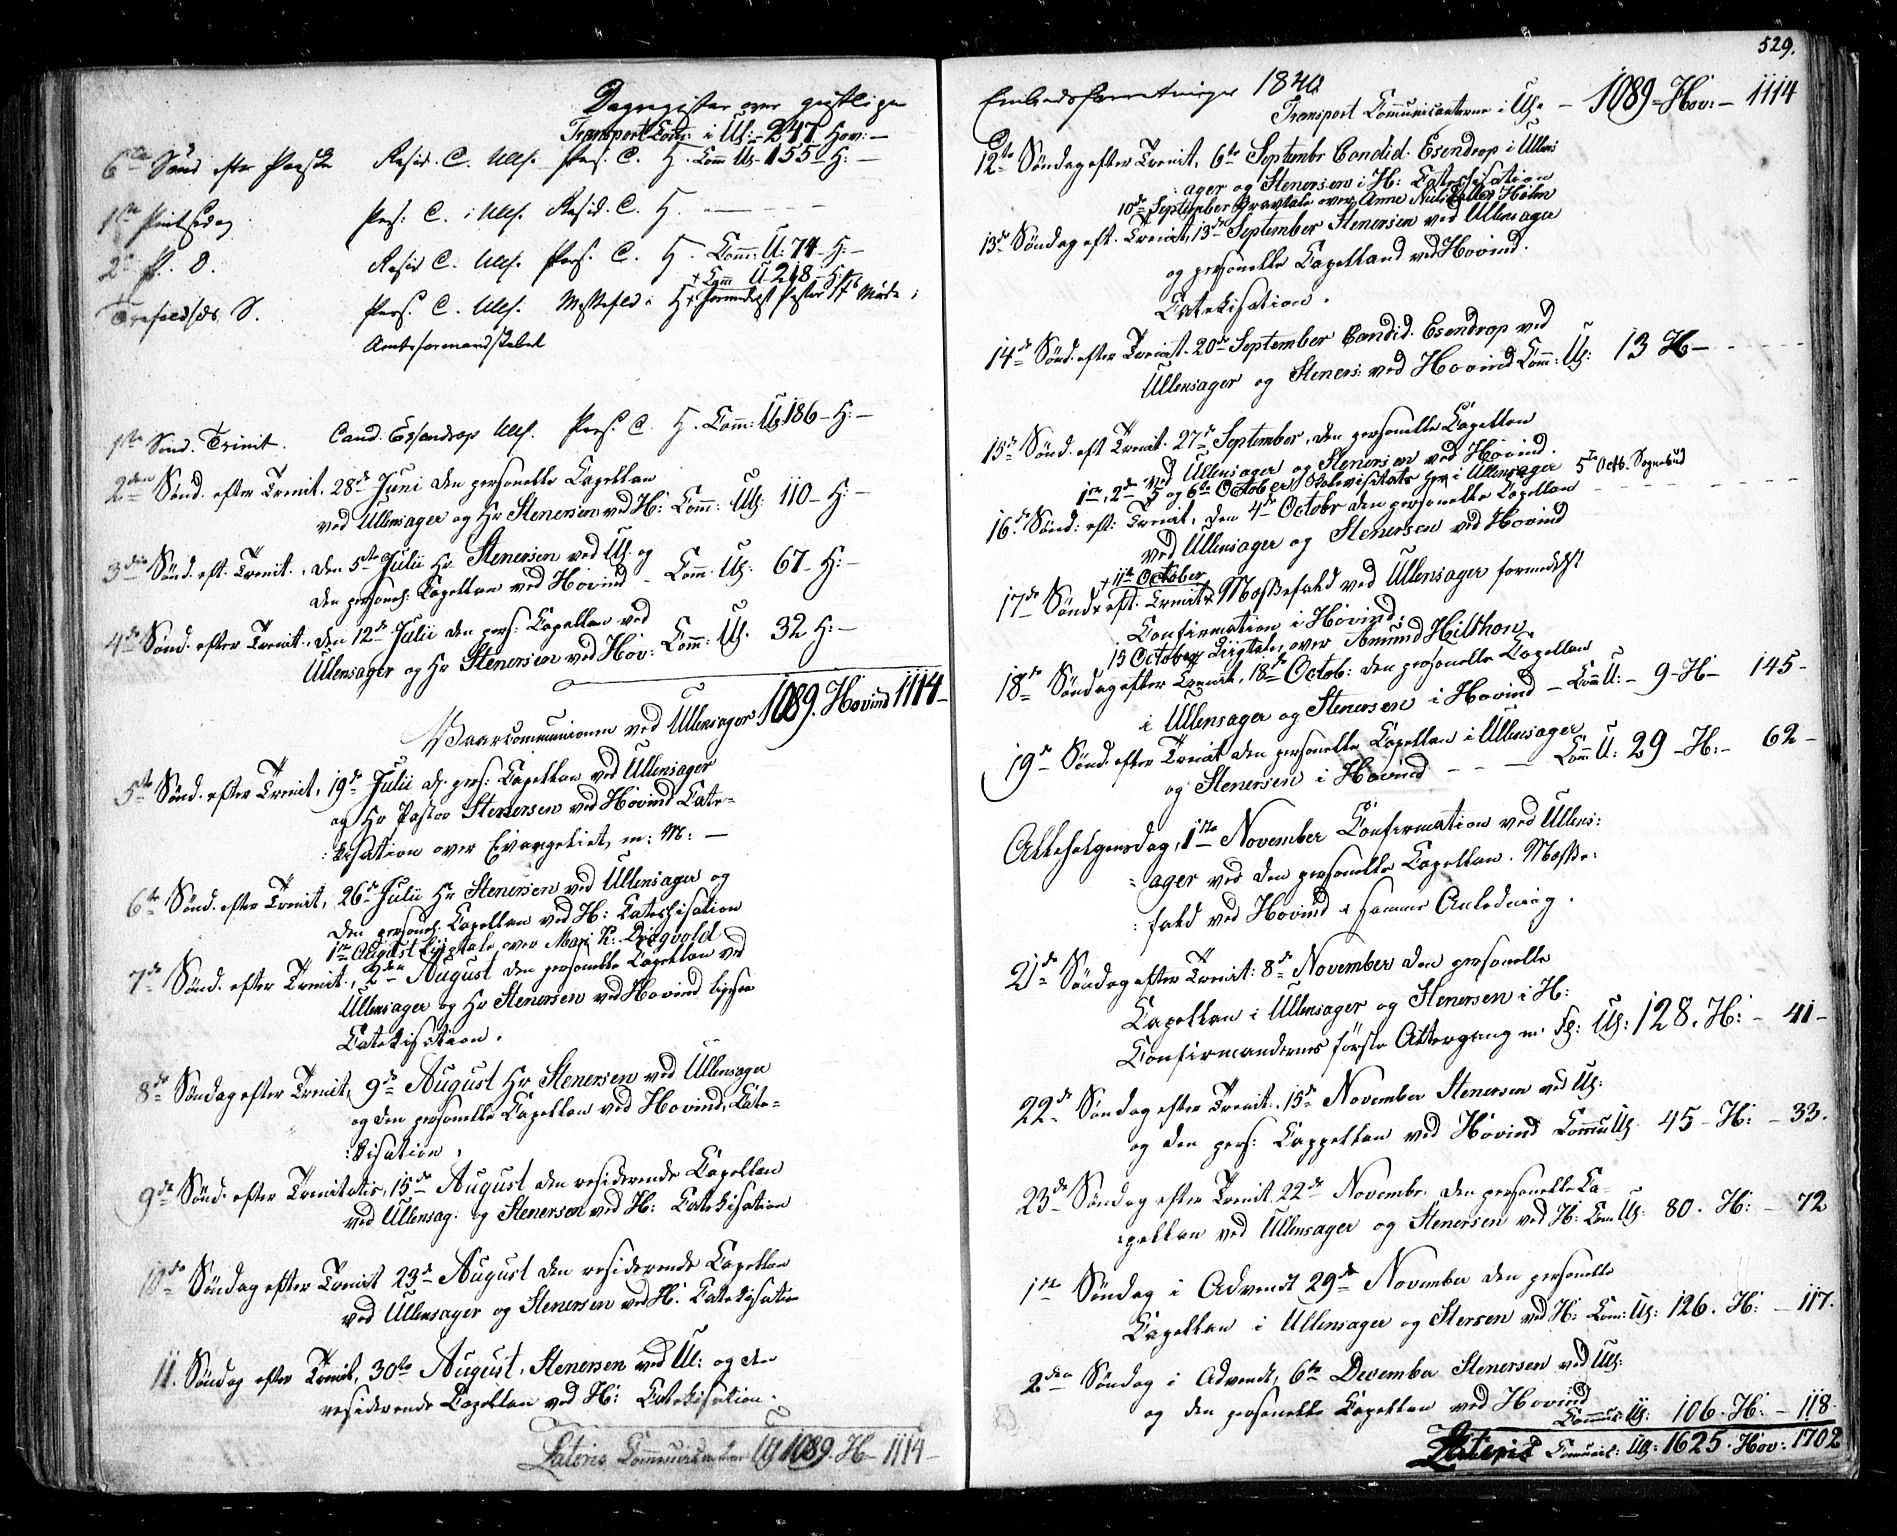 Dagregister over geistlige
Transport Com: i Ul: 247 Hov: —
6te Sønd. efter Paaske Resid. C. Ulls. Pers. C. H. Com Ul. 155 H: —
1ste Pintsedag Pers: C. i Ulls. Resid. C. H. —
2. P. D. Resid C. Ulls. Pers. C. H. Comm: U: 74 H: —
+ Comm U 218 – H:
Trefoldhds S. Pers. C. Ulls. Messefald i H + formedelst Møde i
Amtsformandskabet
1ste Sønd. Trinit. Cand. Esendrop Ulls. Pers. C. H. Comm: Ul. 186 – H: —
2den Sønd. efter Trinit. 28de Junii den personelle Capellan
ved Ullensager og Hr Stenersen ved H: Comm: Ull. 110 – H: —
3die Sønd. eft. Trinit., den 5te Julii Hr Stenersen ved Ul. og
den personel: Capellan ved Hovind – Comm: Ul: 67 – H: —
4de Sønd. efter Trinit., den 12te Julii den pers: Capellan ved
Ullensager og Hr Stenersen ved Hov: Comm: Ul. 32 H: —
Vaarcommunionen ved Ullensager 1089. Hovind 1114 –
5te Sønd. efter Trinit, 19de Julii d. pers: Capellan ved Ullensager
og Hr Pastor Stenersen ved Hovind Cate=
:kisation over Evangeliet, m: M: —
6te Sønd. efter Trinit, 26de Julii Hr Stenersen ved Ullensager og
den personel. Capellan ved H: Catechisation
1ste August Liigtale over Mari K. Diigvold
7de Sønd. efter Trinit., 2den August den personelle Capellan ved
Ullensager og Hr Stenersen ved Hovind ligesaa
Catekisation.
8de Søndag efter Trinit, 9de August Hr Stenersen ved Ullensager
og den personelle Capellan ved Hovind, Cate=
:kisation,
9de Sønd. efter Trinitatis, 15de August den residerende Capellan
ved Ullensag: og Stenersen ved H: Catekisation
10de Søndag efter Trinit 23de August den residerende Capellan
ved Ullensager og Stenersen ved H. Catekisation
11. Søndag efter Trinit, 30te August, Stenersen ved Ul: og den
residerende Capellan ved H: Catekisation.
Lateris Communicanter Ul 1089. H – 1114 –
529.
Embedsforretninger 1840
Transport Communicanterne i Ull. – 1089 – Hov: – 1114
12te Søndag efter Trinit, 6te Septembr Candid. Esendrop i Ullens
:ager og Stenersen i H: Catechisation
10de September Gravtale over Anne Holm
13de Søndag eft. Trinit, 13de September Stenersen ved Ullensager
og personelle Capelland ved Hovind.
Catekisation.
14de Sønd. efter Trinit. 20de September Candid. Esendrop ved
Ullensager og Steners: ved Hovind Comm: Ul: 13 H –
15de Sønd. eft Trinit. 27de September, den personelle Capellan
ved Ullensager og Stenersen ved Hovind.
1ste, 2de 5 og 6te October Skolevisitats i Ullensager 5te Octb. Sognebud
16de Sønd: eft: Trinit, den 4de Octobr den personelle Capellan
ved Ullensager og Stenersen ved Hovind
+ 11te October
17de Sønd + eft. Trinit + Messefald ved Ullensager formedelst
Confirmation i Hovind;
15 October Liigtale, over Amund Hilthon
18de Søndag efter Trinit, 18de Octob: den personelle Capellan
i Ullensager og Stenersen i Hovind – Comm U: – 9 – H – 145 –
19de Sønd. efter Trinit den personelle Capellan i Ullensager
og Stenersen i Hovind – – – Comm U: 29 – H: – 62 –
Allehelgensdag, 1ste November Confirmation ved Ullens:
:ager ved den personelle Capellan. Messe:
:fald ved Hovind i samme Anledning.
21de Søndag efter Trinit: 8de November den personelle
Capellan i Ullensager og Stenersen i H:
Confirmandernes første Altergang m. Fl: Ul: 128. H: – 41 –
22de Søndag efter Trinit. 15de November Stenersen ved Ul:
og den pers: Cappellan ved Hovind Commu Ul. 45 – H: – 33.
23de Søndag efter Trinit. 22de Novembr. den personelle Ca=
:pellan ved Ullensager og Stenersen ved H: Com Ul. 80. H: – 72
1ste Søndag i Advendt 29de November den personelle
Capellan i Ullensager og Stersen ved H: Com: Ul: 126. H: – 117.
2den Søndag i Advendt, 6te December Stenersen ved Ull:
og den personelle Capellan ved Hovind
Commun: Ul: 106. H: – 118.
Lateris Comunic: Ull: 1625. Hov: 1702